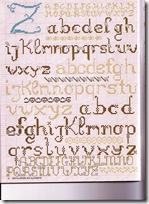 Z ABCDEFGHIJKLM
NOPQRSTUVWXYZ
abcdefgh
ijklmnopqrstuv
wxyz abcdefghi
jklmnopqrstuv
wxyz abcd
efghijklmnop
qrstuvwxyz
ABCDEFGHIJKLMNO
PQRSTUVWXYZ